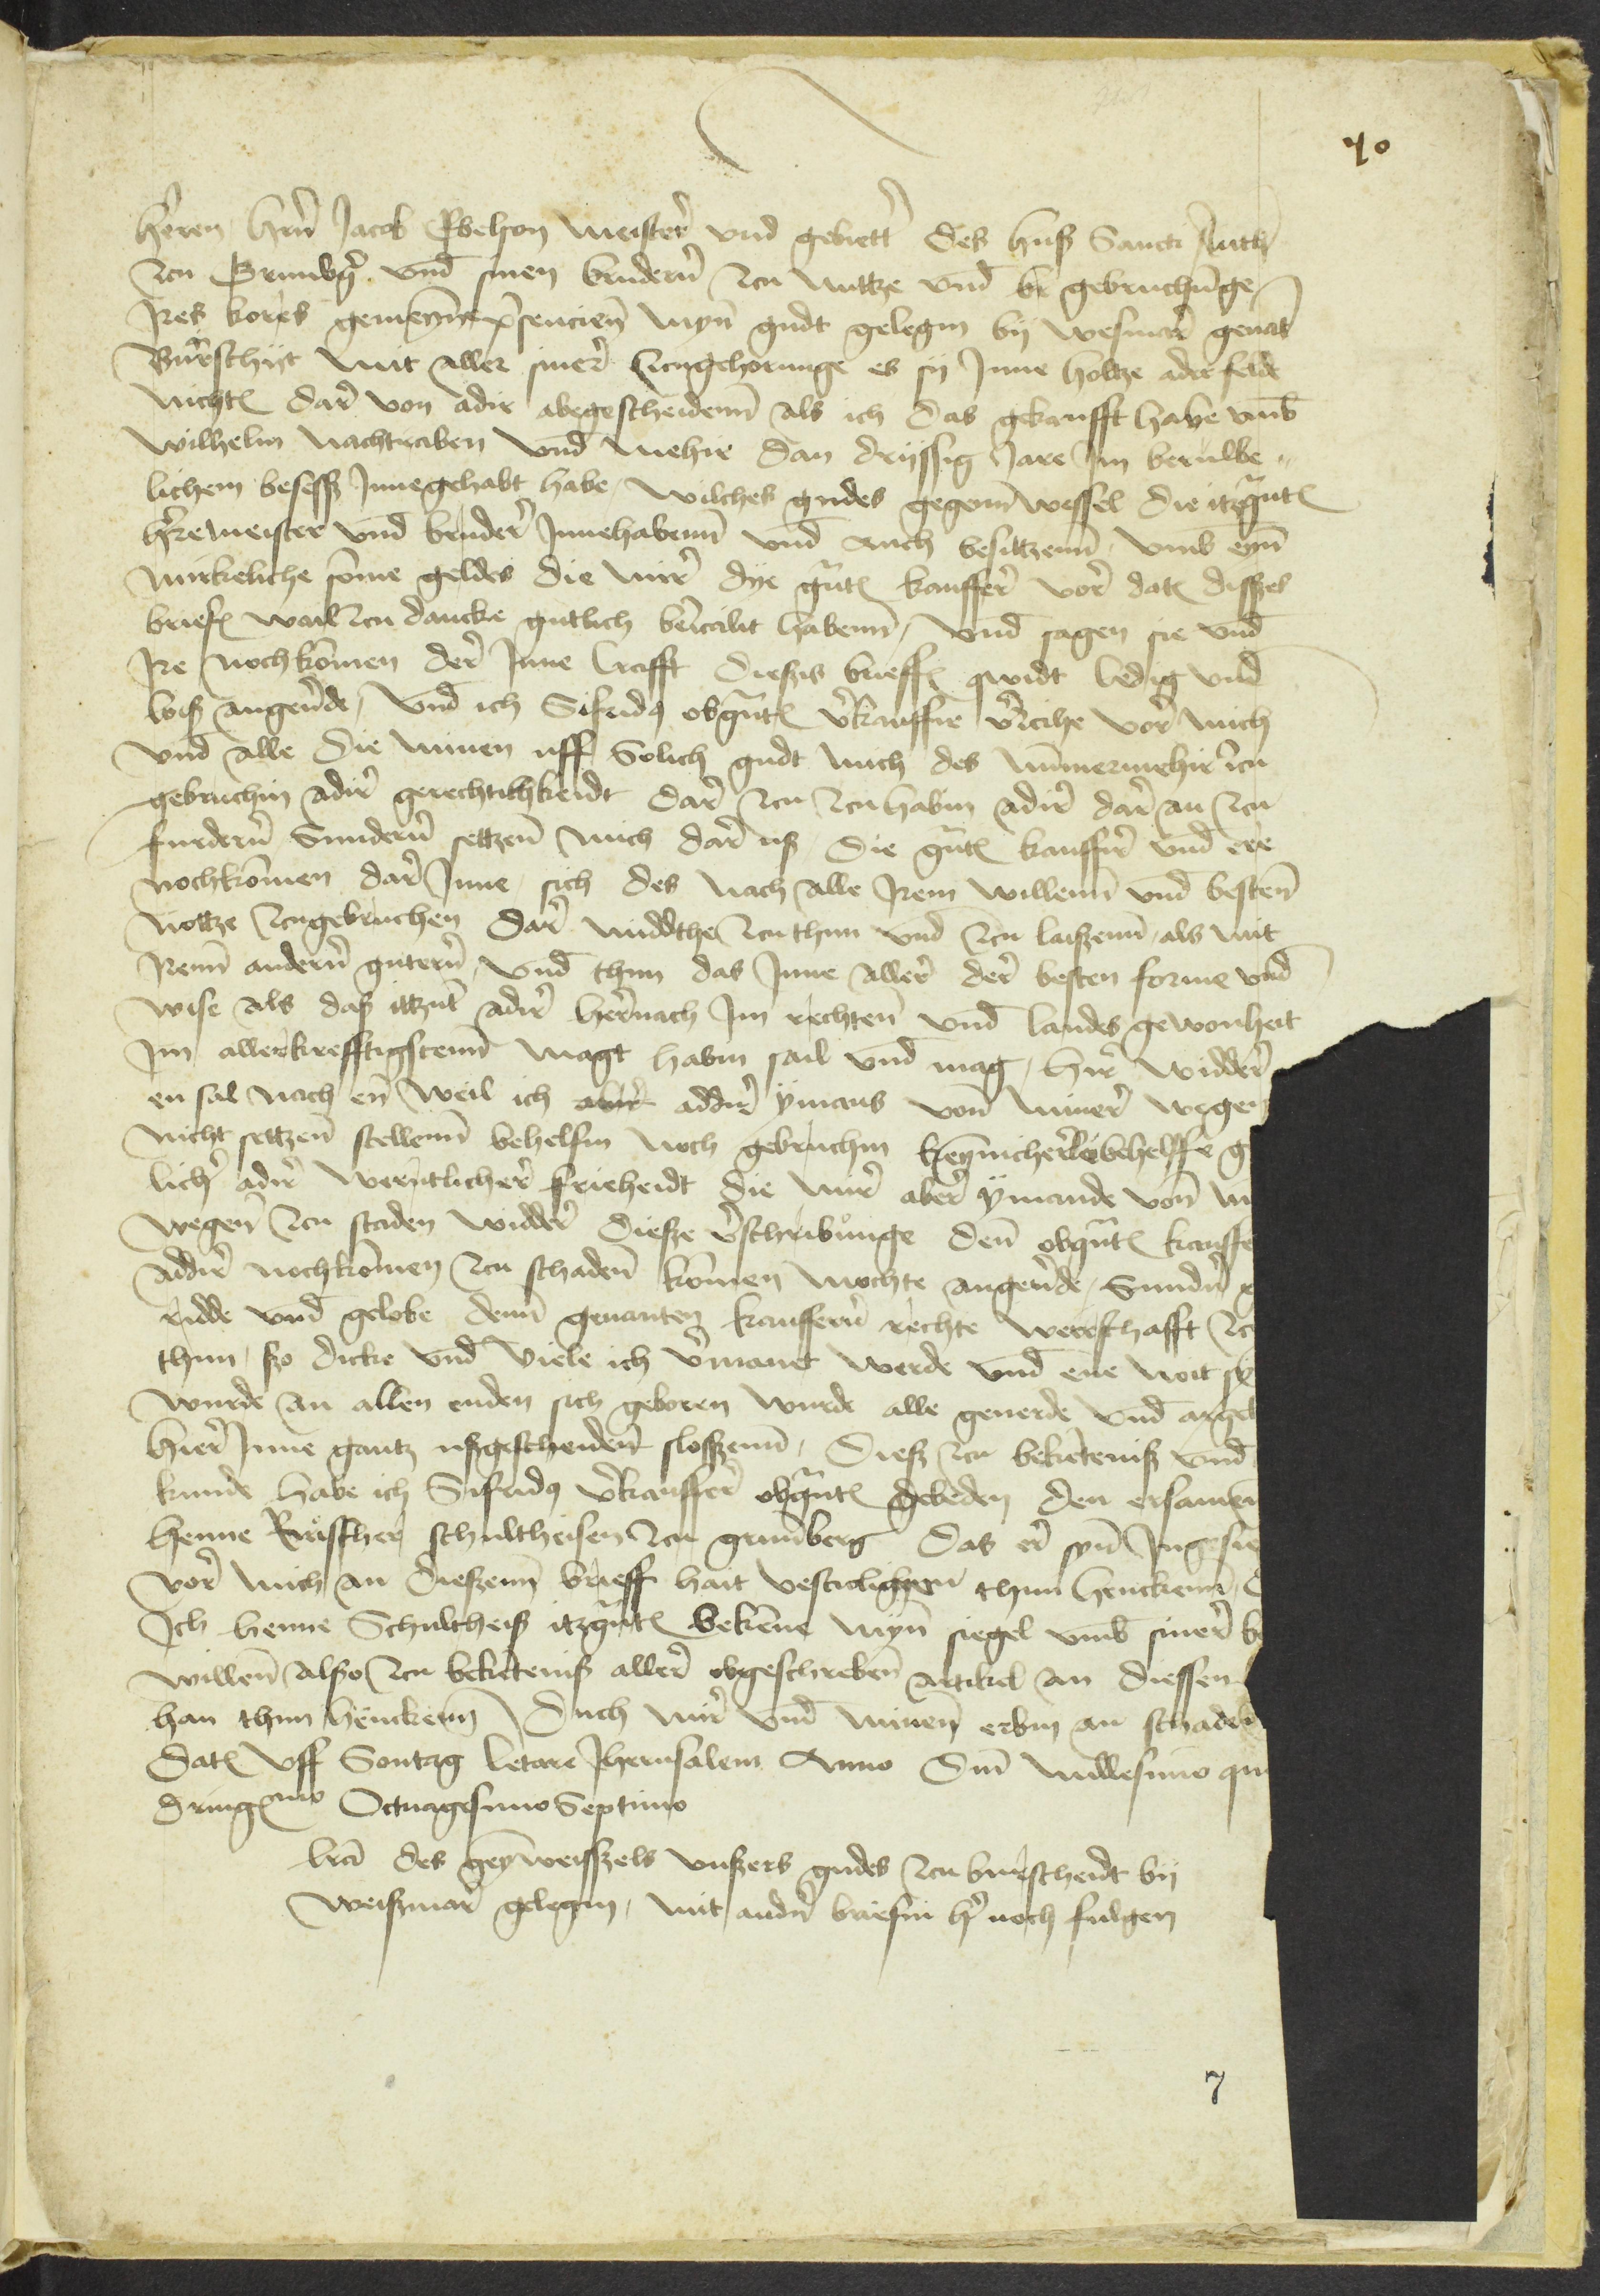 40
heren hern Jacob Ebelson meister und gebieter des huß Sancti Anth
zcu Grunbg und sinen brudern zcu nutze und be gebruchunge
Jres kores gemeynne psencien myn gudt gelegin by wesmar genat
Buirschijt mit aller siner zcugehorunge es sy Jnne holtze adir felde
nichts dar von adir abegescheidenn als ich das gekaufft habe umb
wilhelm nachtraben und mehir dan dryssig Jare Jm berulbe
lichem besesß Jnnegehabt habe, wilches gudes gegenwessel die itzgnt
hre meister und bruder Jnnehabenn und auch besittzenn, umb eyn
mirkeliche some geldes die mir dye gnt kauffer vor dat dißzes
brieff wail zcu dancke gutlich beczalit habenn, und sagen sie und
Jre nochkomen der Jnne krafft dießzes brieff qwidt ledig und
loiß angeude, und ich Sifridus obgnt vkauffer vczihe vor mich
und alle die minen uff Solich gudt mich des nummermehir zcu
gebruchin adir gerechtichkeidt dar zcu zcu habin adir dar an zcu
furdern Sundern settzen mich dar uß die gnt kauffir und ere
nochkomen dar Jnne sich des nach alle Jrem willenn und besten
nottze zcugebruchen dar midde zcu thun und zcu laißzenn, als mit
Jrenn andern gutern, und thun das Jnne aller der besten forme und
wise als daß ittzunt adir hernach Jm rechten und landes gewonheit
Jm allerkrefftigstenn magt habin sail und mag, hir widder
en sal noch en weil ich adder ymans von miner wegen
nicht settzen stellenn behelfin noch gebruchin keynicherlei behelffe g
licher adir werntlicher friheidt die mir aber ymande von mi
wegen zcu staden widder dießze vschribunge den obgnt kauffe
addir nochkomen zcu schaden komen mochte angeude, Sundn
ridde und gelobe denn genanten kauffern rechte werschafft zcu
thun, so dicke und viele ich vmanet werde und ene noit s
wurde an allen enden sich geboren wurde alle geuerde und argel
hier Jnne gantz ußgescheiden sloßzenn, Dieß zcu bekenteniß und
kunde habe ich Sifridus vkauffer obgnt gebeden den ersamen
henne Ruischer schultheisen zcu grunberg das er syn Jngesie
vor mich an dießzenn brieff hait thun henckenn, d
Jch henne Schultheiß itzgnt bekenne myn siegel umb siner be
willen also zcu bekenteniß aller obgeschreben artikel an diessen
han thun henckenn Duch mir und minen erbin an schaden
Dat uff Sontag letare Jherusalem Anno Dm millesimo qua
dringmo Octuagesimo Septimo
lra des geynweißzels unßers gudes zcu burscheidt by
weißmar gelegin, mit andn briefin h noch fulgen
7